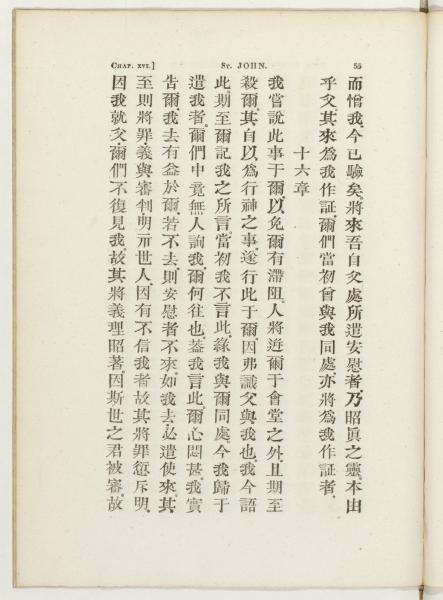 CHAP. XVI.]
ST. JOHN.
55
而憎我今已驗矣將來吾自父處所遣安慰者乃昭眞之靈本由
乎父其來爲我作証爾們當初曾與我同處亦將爲我作証者
十六章
我嘗說此事于爾以免爾有滯阻人將逬爾于會堂之外且期至
殺爾其自以爲行神之事遂行此于爾因弗識父與我也我今語
此期至爾記我之所言當初我不言此緣我與爾同處今我歸于
遣我者爾們中竟無人詢我爾何往也葢我言此爾心悶甚我實
告爾我去有益於爾若不去則安慰者不來如我去必遣使來其
至則將罪義與審判明示世人因有不信我者故其將罪愆斥明
因我就父爾們不復見我故其將義理昭著因斯世之君被審故